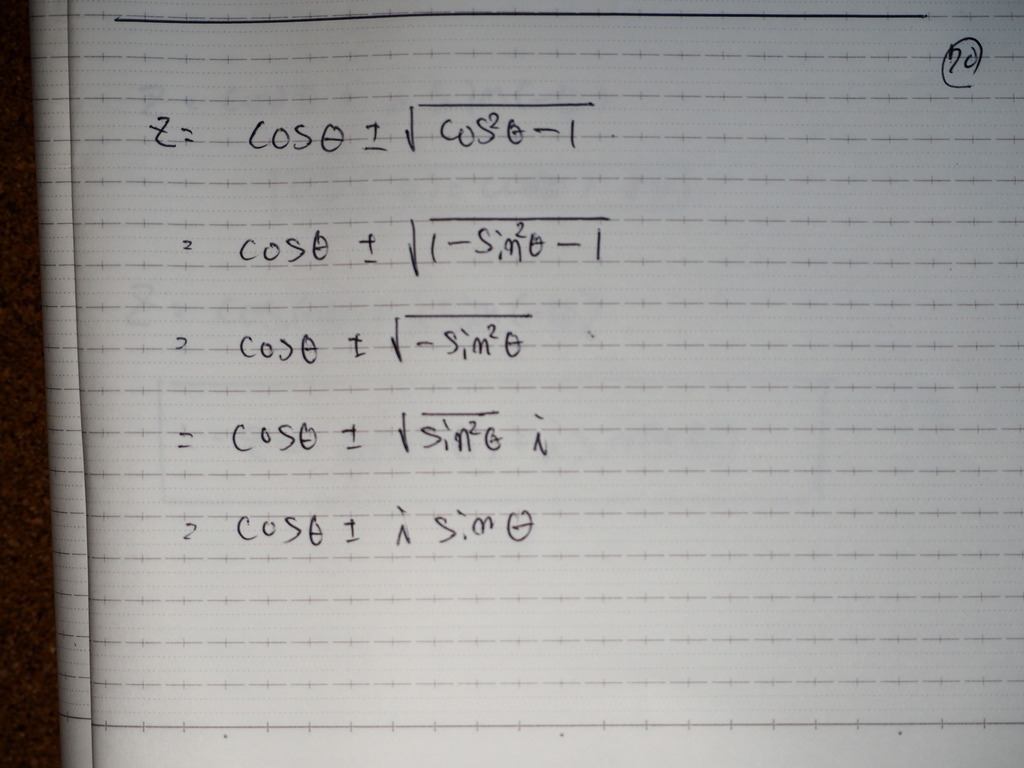 z = cosθ ± √(cos²θ − 1)
= cosθ ± √(1 − sin²θ − 1)
= cosθ ± √(−sin²θ)
= cosθ ± √(sin²θ) i
= cosθ ± i sinθ